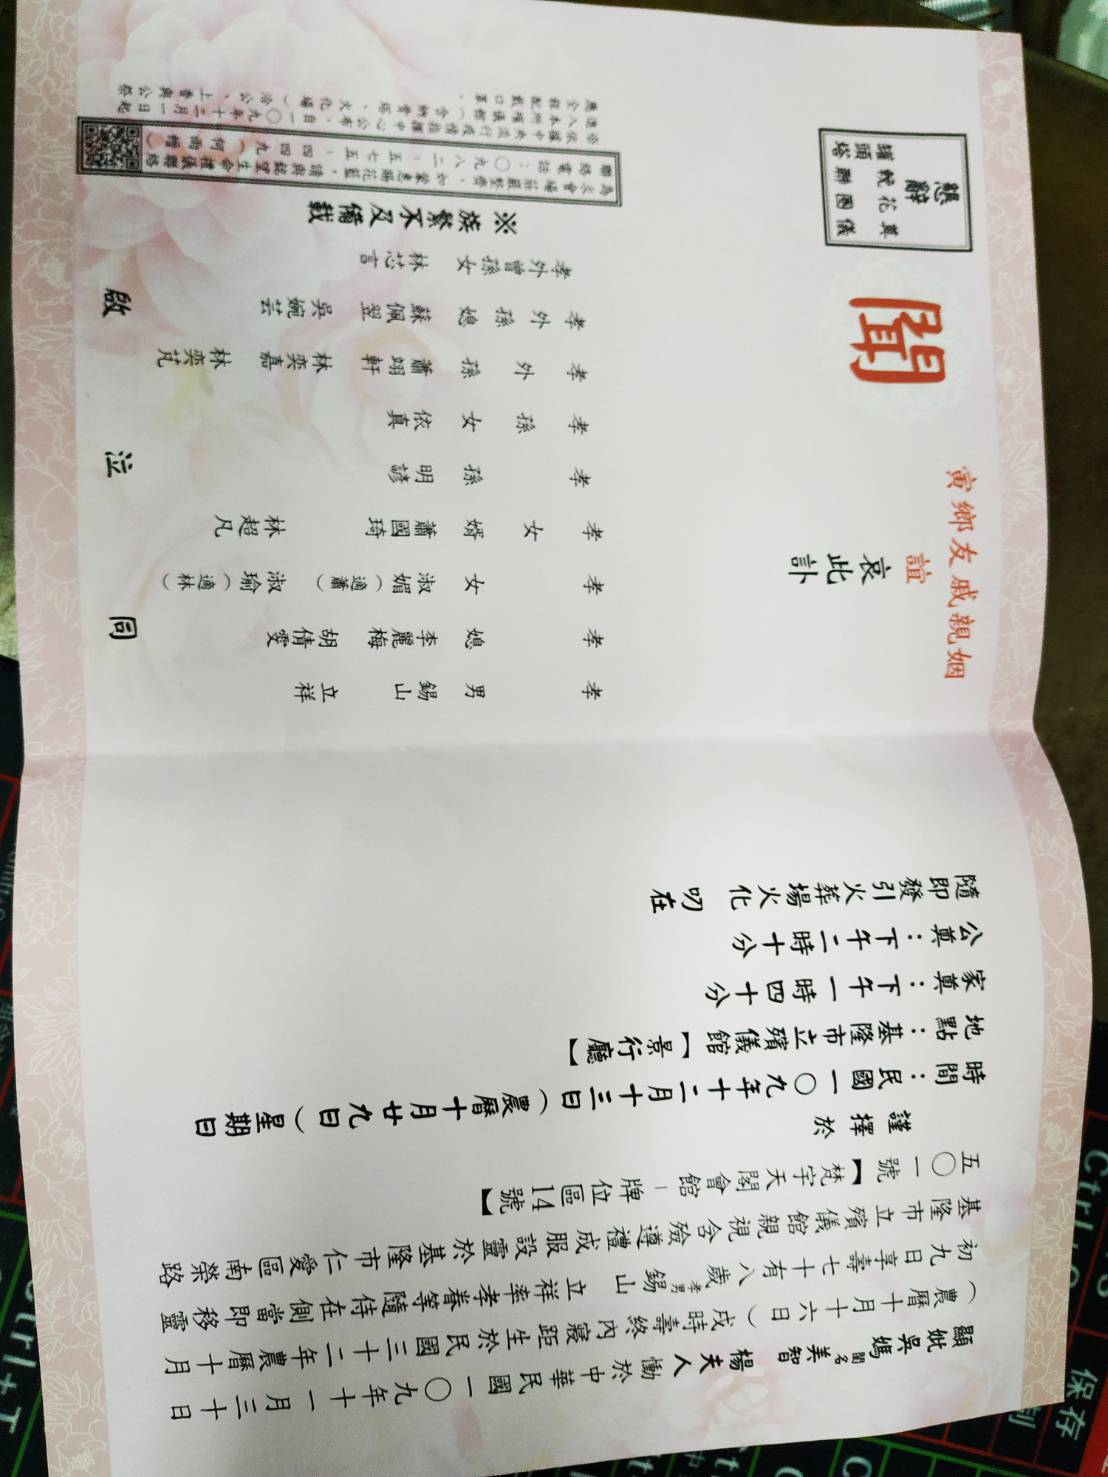 顯妣吳媽閨名美智楊夫人慟於中華民國一〇九年十一月三十日
（農曆十月十六日）戌時壽終內寢距生於民國三十二年農曆十月
初九日享壽七十有八歲孝男錫山立祥率孝眷等隨侍在側當即移靈
基隆市立殯儀館親視含殮遵禮成服設靈於基隆市仁愛區南榮路
五〇一號【梵宇天閣會館－牌位區14號】
謹擇於
時間：民國一〇九年十二月十三日（農曆十月廿九日）星期日
地點：基隆市立殯儀館【景行廳】
家奠：下午一時四十分
公奠：下午二時十分
隨即發引火葬場火化 叨在
姻親戚友鄉寅
誼
哀此訃
聞
懇辭
奠儀 花圈 輓聯 罐頭塔
孝男 錫山 立祥
孝媳 李麗梅 胡倩雯
孝女 淑媚（適蕭） 淑瑜（適林）
孝女婿 蕭國琦 林超凡
孝孫 明諺
孝孫女 依真
孝外孫 蕭翊軒 林奕嘉 林奕芃
孝外孫媳 蘇佩翌 吳婉芸
孝外曾孫女 林芯言
同泣啟
※族繁不及備載
為求會場莊嚴整齊，如蒙惠賜花籃，請與銘望生命禮儀聯絡
聯絡電話：〇九八二－五五七－四四九（何雨橧）